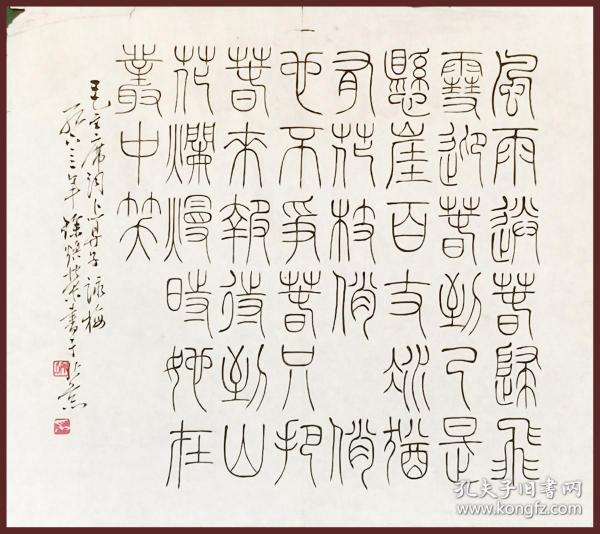 風雨送春歸飛
雪迎春到已是
懸崖百丈冰猶
有花枝俏 俏
也不爭春只把
春來報待到山
花爛熳時她在
叢中笑
毛主席词卜算子詠梅
一九六三年徐焕荣書于北京
孔夫子旧书网
www.kongfz.com